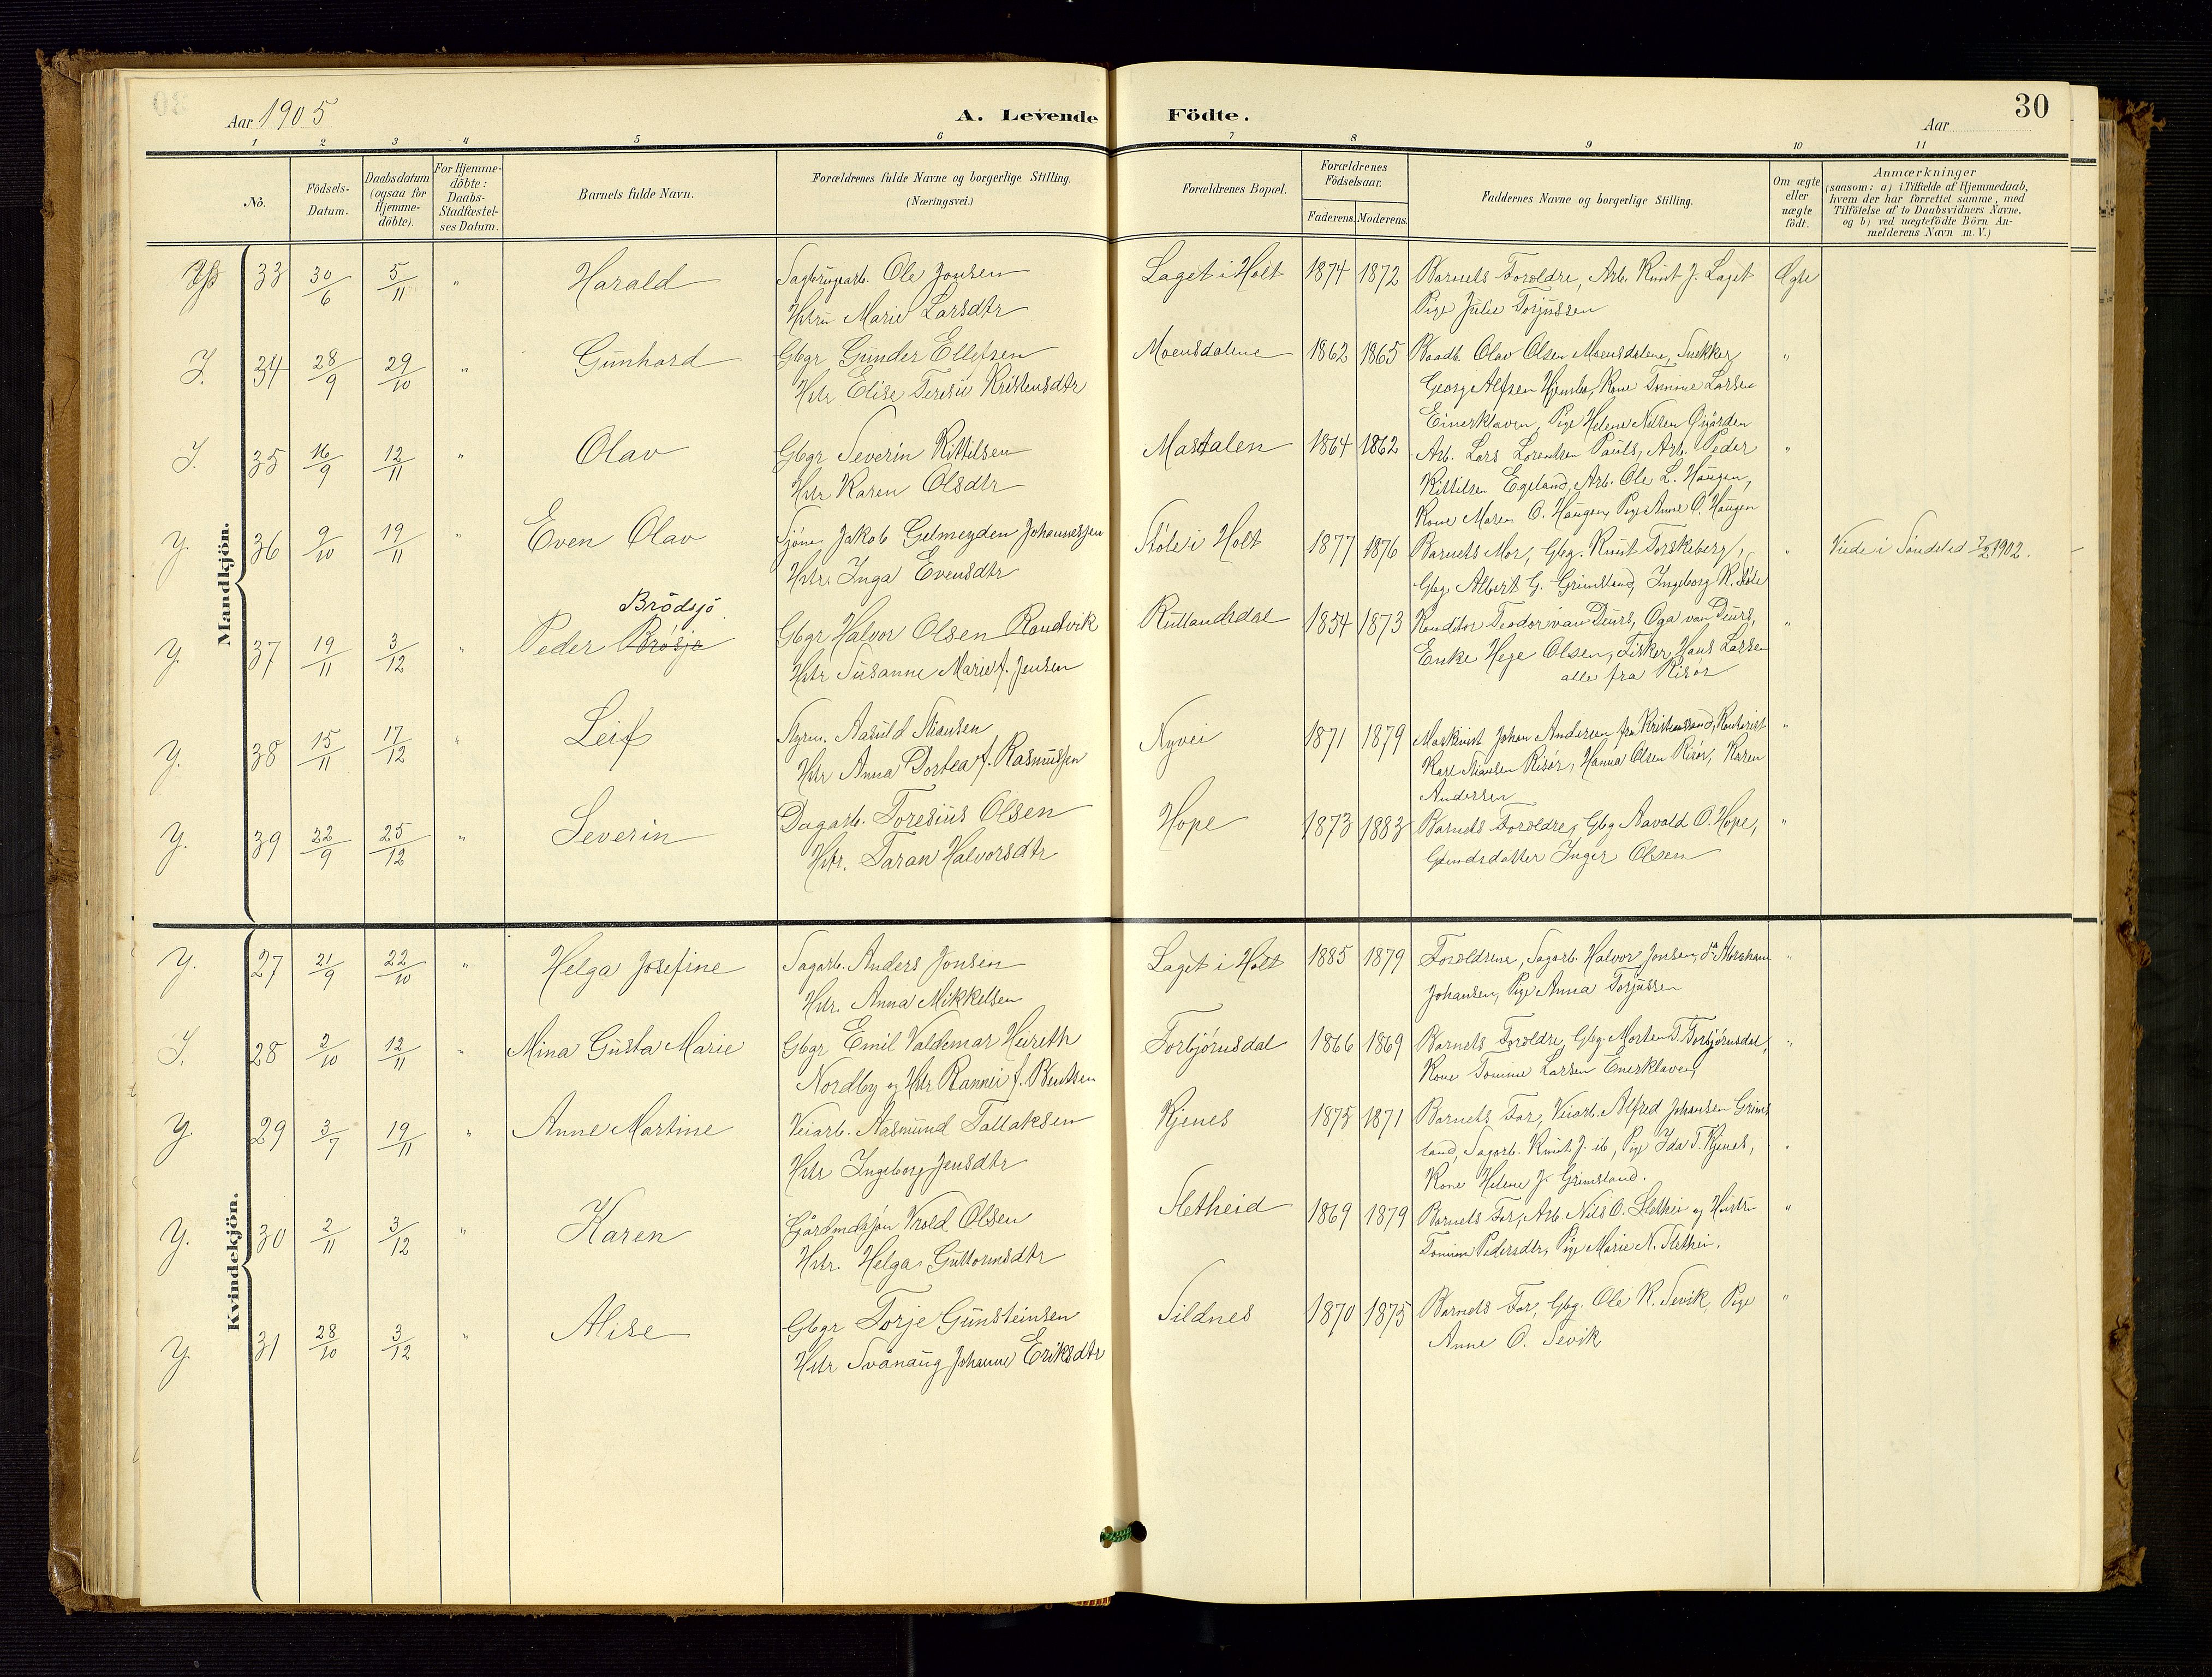 Aar 1905
A. Levende Födte.
Aar
30
1 2 3 4 5 6 7 8 9 10 11
No.
Födsels-Datum.
Daabsdatum (ogsaa for Hjemme-döbte).
For Hjemme-döbte: Daabs-Stadfæstel-ses Datum.
Barnets fulde Navn.
Forældrenes fulde Navne og borgerlige Stilling.
(Næringsvei.)
Forældrenes Bopæl.
Forældrenes Födselsaar.
Faderens. Moderens.
Faddernes Navne og borgerlige Stilling.
Om ægte eller uægte födt.
Anmærkninger
(saasom: a) i Tilfælde af Hjemmedaab, hvem der har forrettet samme, med Tilföielse af to Daabsvidners Navne, og b) ved uægtefödte Börn An-melderens Navn m. V.)
Mandkjön.
33 30/6 5/11 " Harald Sagbrugsarb. Ole Jonsen Laget i Holt 1874 1872 Barnets Foroldre, Arb. Knut J. Laget Ægte
Hstru Marie Larsdtr Pige Julie Torjussen
J. 34 28/9 29/10 " Gunhard Gbgr Gunder Ellefsen Moensdalene 1862 1865 Baadb. Olav Olsen Moensdalene, Snekker "
Hstr Elise Teresie Kristensdtr Georg Alfsen Hjemsbo, Kone Tomine Larsen
Einersklaven, Pige Helene Nilsen
J. 35 16/9 12/11 " Olav Gbgr Severin Kittilsen Mastalen 1864 1862 Arb. Lars Lorentsen Pauls, Arb. Peder "
Hstr Karen Olsdtr Kittilsen Egeland, Arb. Ole L. Haugen,
Kone Maren O. Haugen, Pige Anne O. Haugen
Y. 36 9/10 19/11 " Even Olav Sjöm. Jakob Gelmeyden Johannessen Støle i Holt 1877 1876 Barnets Mor, Gbg. Knut Torskeberg, " Viede i Søndeled 7/2 1902.
Hstr. Inga Evensdtr Gbg. Albert G. Grimsland, Ingeborg K. Støle
Brödsjö
Y. 37 19/11 3/12 " Peder Brösje Gbgr Halvor Olsen Randvik Rutlandsdal 1854 1873 Konditor Teodor van Deurs, Oga van Deurs, "
Hstr Susanne Marie f. Jensen Enke Hege Olsen, Fisker Hans Larsen
alle fra Risør
Y. 38 15/11 17/12 " Leif Styrm. Aasuld Niansen Nyvei 1871 1879 Maskinist Johan Andersen fra Kristianssand, Kontorist "
Hstr Anna Dortea f. Rasmussen Karl Niansen Risør, Hanna Olsen Risør, Karen
Andersen
Y. 39 22/9 25/12 " Severin Dagarb. Toresius Olsen Hope 1873 1883 Barnets Foroldre, Gbg Aavald O. Hope, "
Hstr. Taran Halvorsdtr Gmdsdatter Inger Olsen
Kvindekjön.
Y. 27 21/9 22/10 " Helga Josefine Sagarb. Anders Jonsen Laget i Holt 1885 1879 Foroldrene, Sagarb. Halvor Jonsen, do Abraham "
Hstr. Anna Mikkelsen Johansen, Pige Anna Torjussen
J. 28 2/10 12/11 " Mina Gusta Marie Gbgr Emil Valdemar Heireth Torbjørnsdal 1866 1869 Barnets Foroldre, Gbg. Morten T. Torbjørnsdal, "
Nordby og Hstr Rannei f. Bentsen Kone Tomine Larsen Einersklaven
Y. 29 3/7 19/11 " Anne Martine Veiarb. Aasmund Tallaksen Kjenes 1875 1871 Barnets Far, Veiarb. Alfred Johansen Grims
Hstr Ingeborg Jensdtr land, Sagarb. Knut J. ib, Pige Ida T. Kjenes, "
Kone Helene J. Grimsland.
Y. 30 2/11 3/12 " Karen Gårdmdsjøn Vrold Olsen Sletheid 1869 1879 Barnets Far, Arb. Nils O. Slethei og Hustru "
Hstr. Helga Guttormsdtr Tomine Pedersdtr, Pige Marie N. Slethei.
Y. 31 28/10 3/12 " Alise Gbgr Torje Gunsteinsen Sildnes 1870 1875 Barnets Far, Gbg. Ole K. Sevik, Pige "
Hstr Svånaug Johanne Eriksdtr Anne O. Sevik